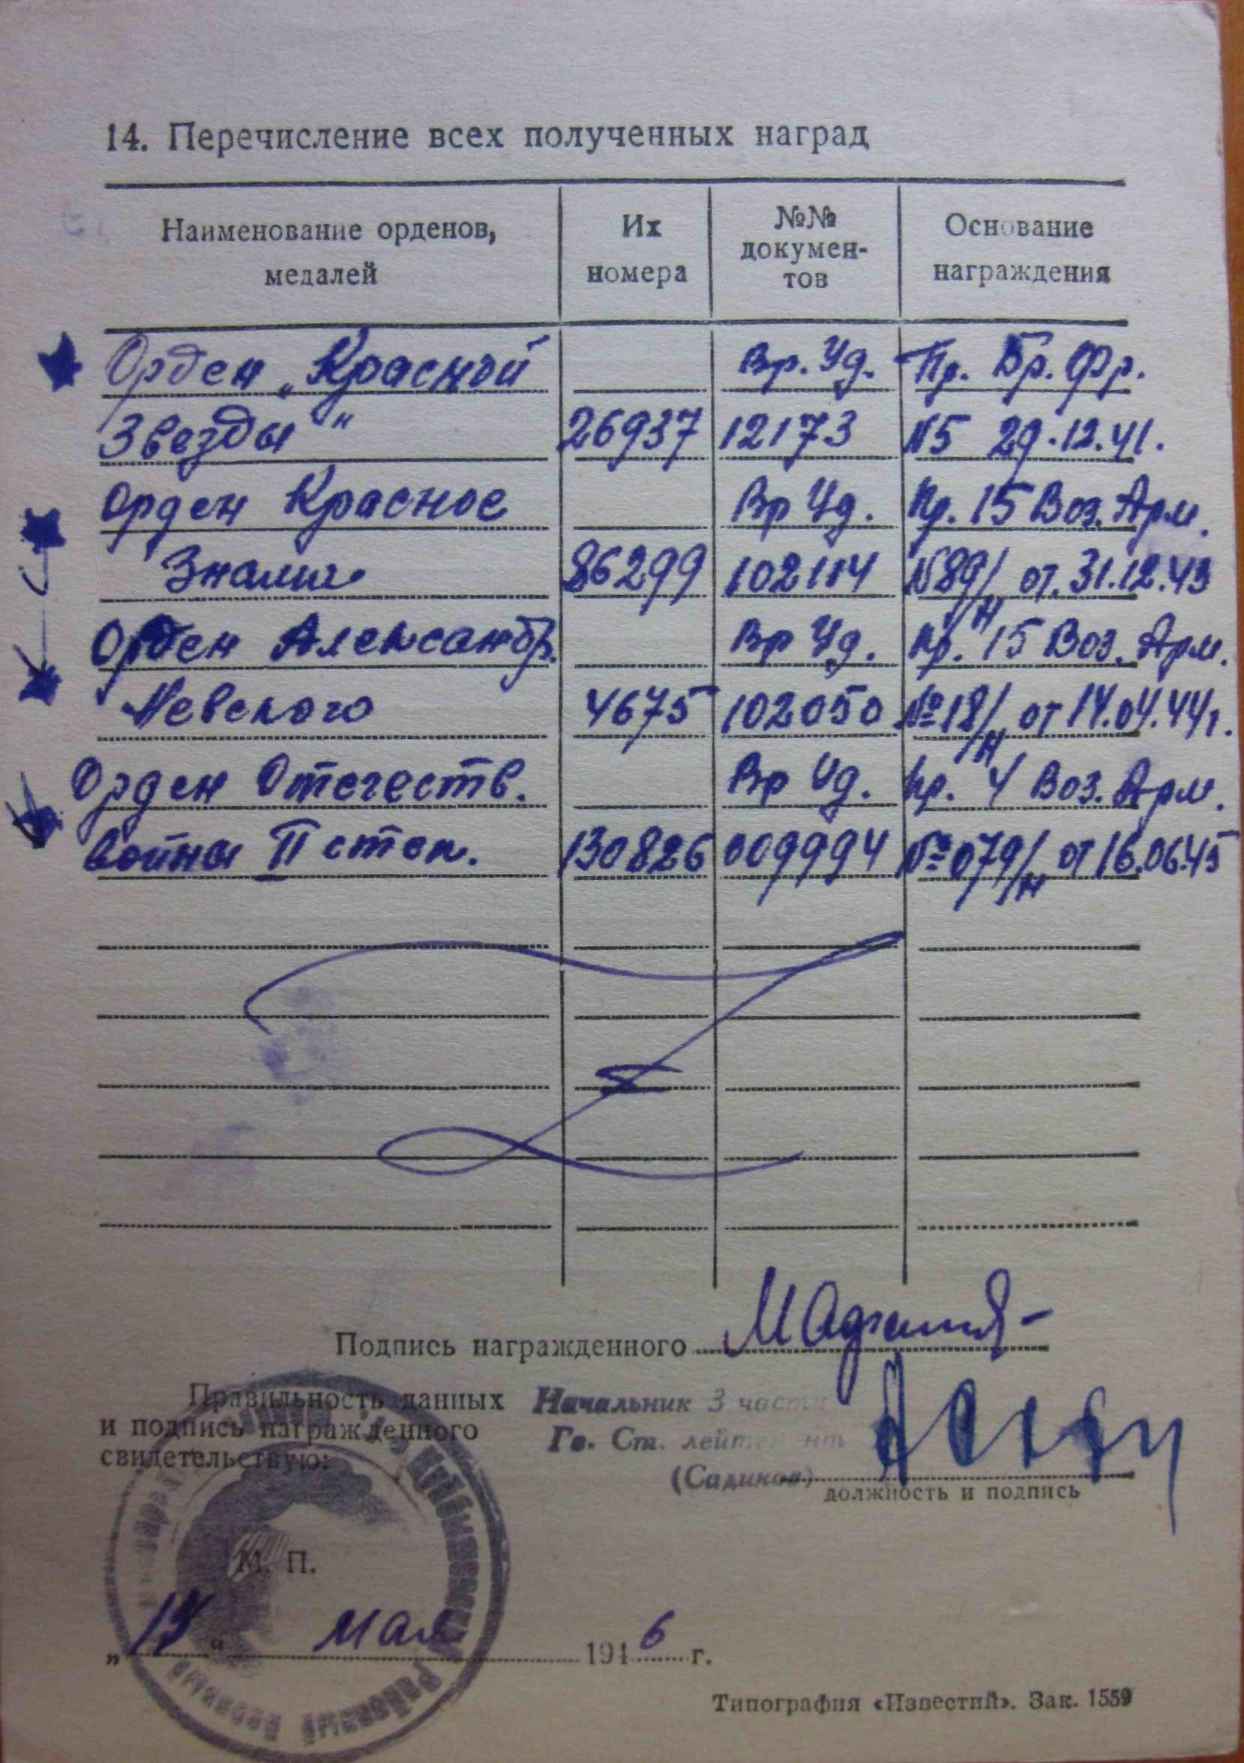 14. Перечисление всех полученных наград
Наименование орденов, медалей
Их номера
№№ докумен-тов
Основание награждения
Орден „Красной Вр. Уд. Пр. Бр. Фр.
Звезды" 26937 12173 №5 29.12.41.
Орден Красное Вр Уд. Пр. 15 Воз. Арм.
Знамя 86299 102114 №89/н от. 31.12.43
Орден Александр. Вр Уд. Пр. 15 Воз. Арм.
Невского 4675 102050 №18/н от 14.04.44г.
Орден Отечеств. Вр Уд. Пр. 4 Воз. Арм.
войны II степ. 130826 009994 №079/н от 16.06.45
Подпись награжденного
Правильность данных
и подпись награжденного
свидетельствую:
Начальник 3 части
Гв. Ст. лейтенант
(Садиков)
должность и подпись
М. П.
мая 1946 г.
Типография «Известий». Зак. 1559